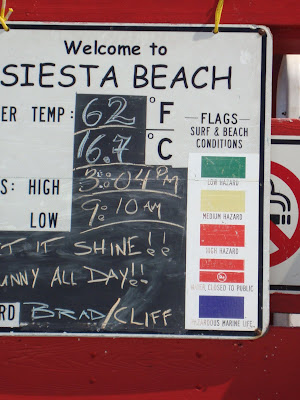 Welcome to
SIESTA BEACH
ER TEMP: 62 °F
16.7 °C
S: HIGH 3:04 PM
LOW 9:10 AM
T IT SHINE!!
UNNY ALL DAY!!
RD BRAD/CLIFF
FLAGS
SURF & BEACH
CONDITIONS
LOW HAZARD
MEDIUM HAZARD
HIGH HAZARD
WATER CLOSED TO PUBLIC
HAZARDOUS MARINE LIFE